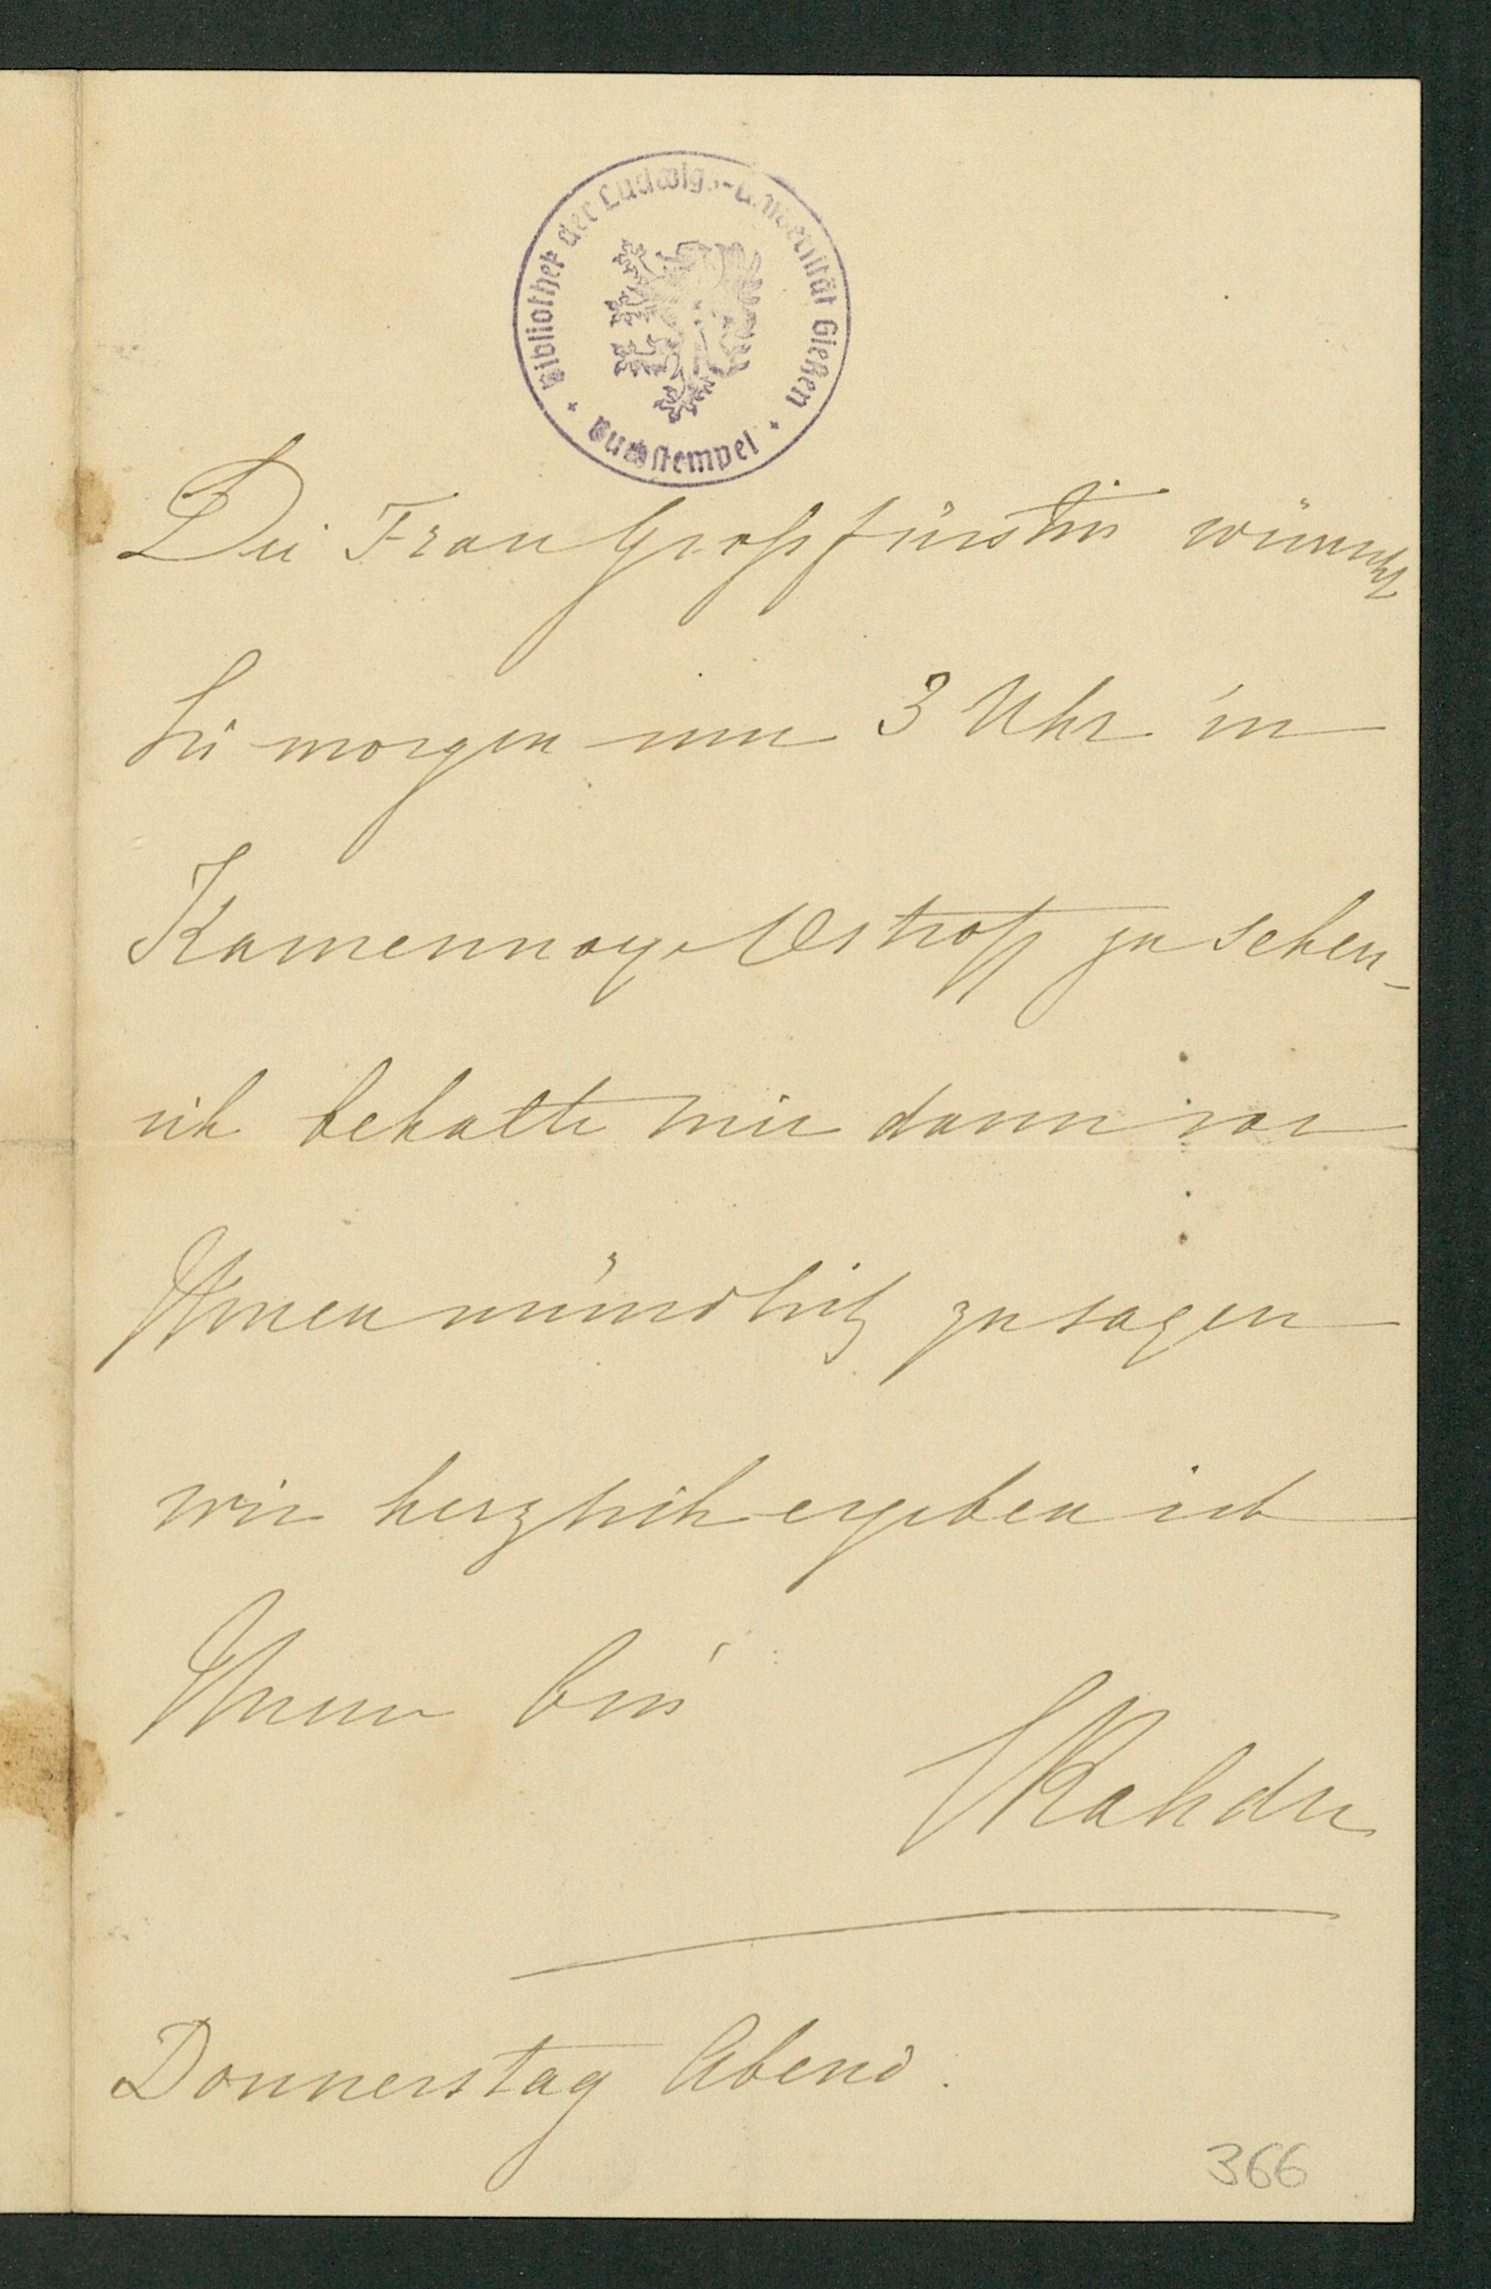 Bibliothek der Ludwigs-Universität Gießen
Buchstempel
Die Frau Großfürstin wünscht
Sie morgen um 3 Uhr in
Kamennoy-Ostroff zu sehen -
ich behalte mir dann vor
Ihnen mündlich zu sagen
wie herzlich ergeben ich
Ihnen bin
ERahden
Donnerstag Abend.
366